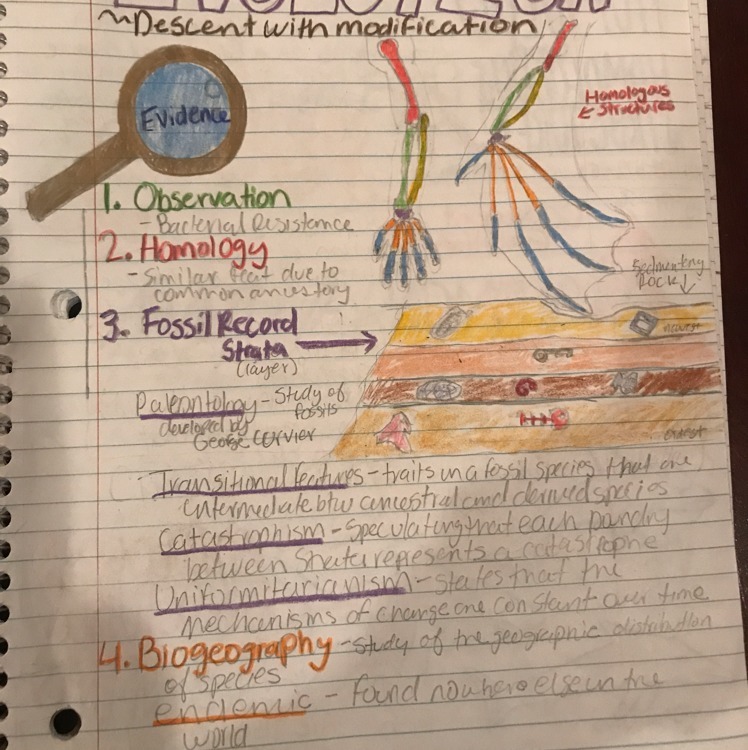 EVOLUTION
~Descent with modification
Evidence
Homologous
Structures
1. Observation
- Bacterial Resistance
2. Homology
- Similar trait due to
common ancestory
Sedimentary
Rock
3. Fossil Record
Strata
(layer)
newest
Paleontology - Study of
fossils
developed by
George Curvier
oldest
Transitional features - traits in a fossil species that are
intermediate btw ancestral and derived species
Catastrophism - Speculating that each boundry
between Strata represents a catastrophe
Uniformitarianism - states that the
mechanisms of change are constant over time
4. Biogeography - study of the geographic distribution
of species
endemic - found nowhere else in the
world